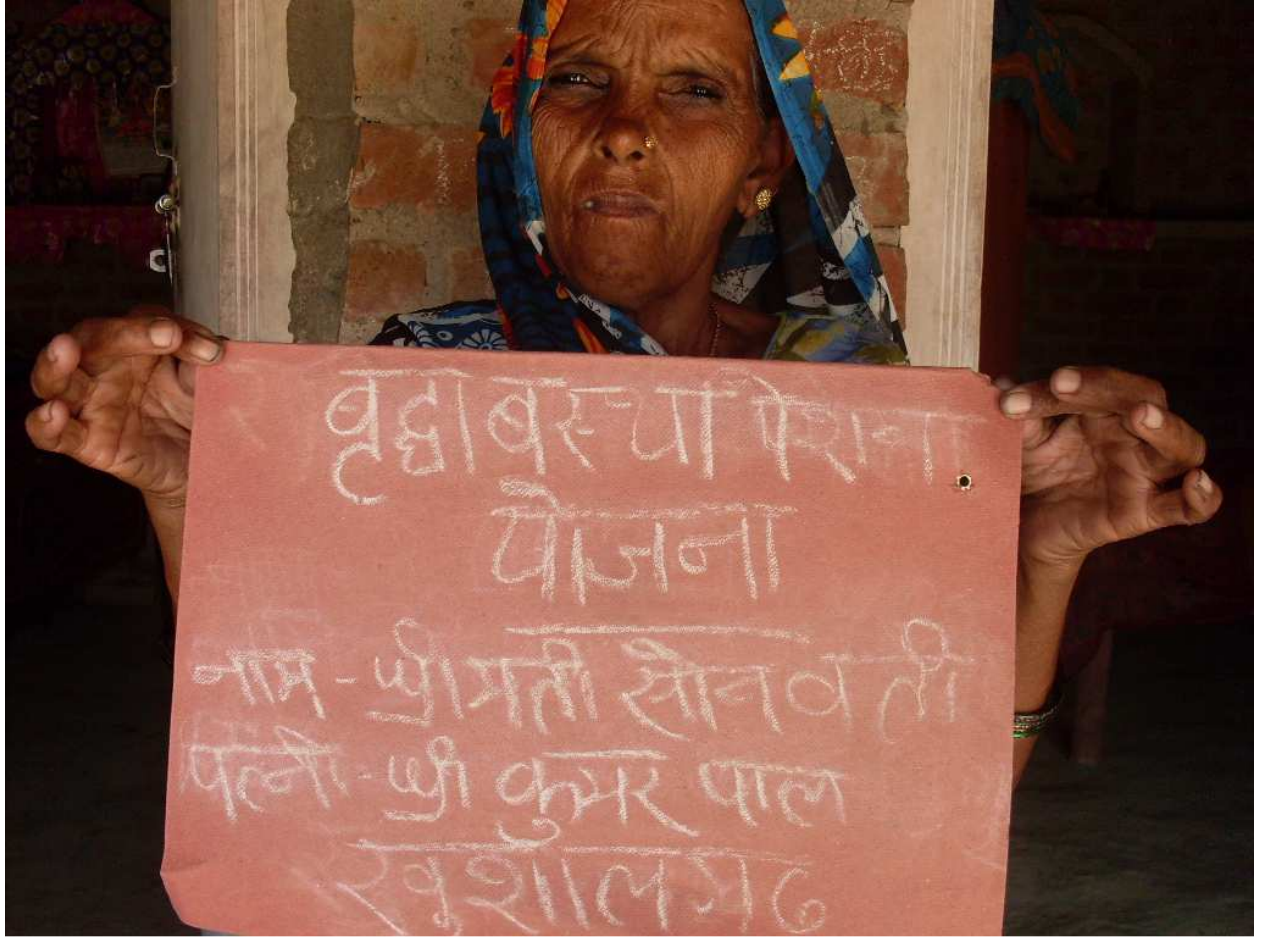 बृद्धाबस्था पेशन
योजना
नाम - श्रीमती सोनवती
पत्नी - श्री कुमर पाल
खुशालगढ